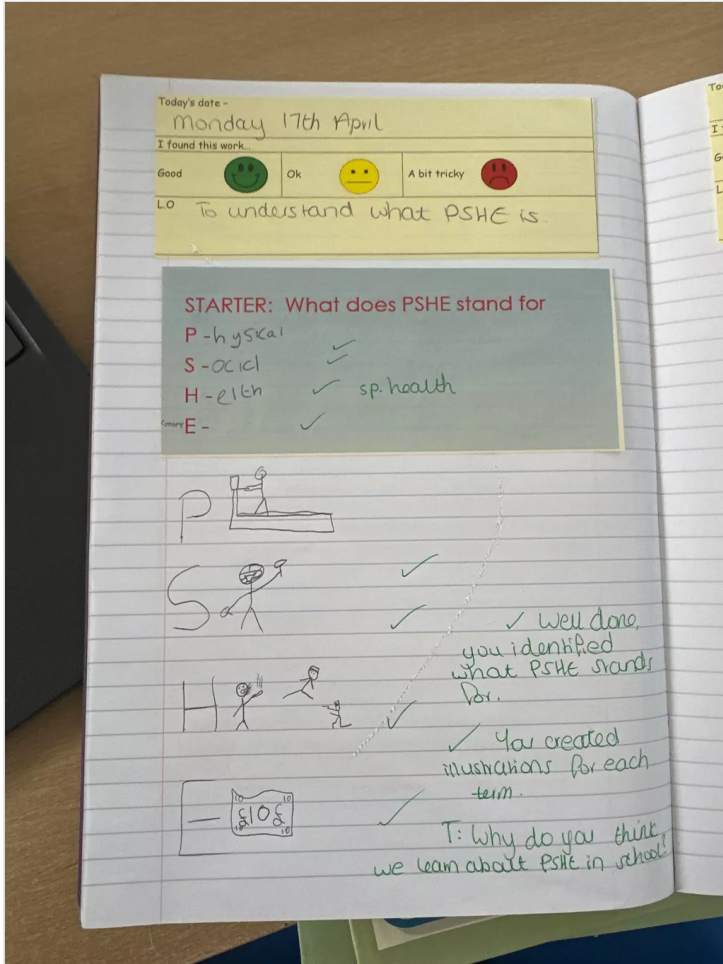 Today's date -
Monday 17th April
I found this work...
Good Ok A bit tricky
LO To understand what PSHE is.
STARTER: What does PSHE stand for
P - hysical
S - ocicl
H - elth sp. health
E -
P
S
H
E £10£
10 10
10 10
Well done,
you identified
what PSHE stands
for.
You created
illustrations for each
term.
T: Why do you think
we learn about PSHE in school?
To
I
G
L